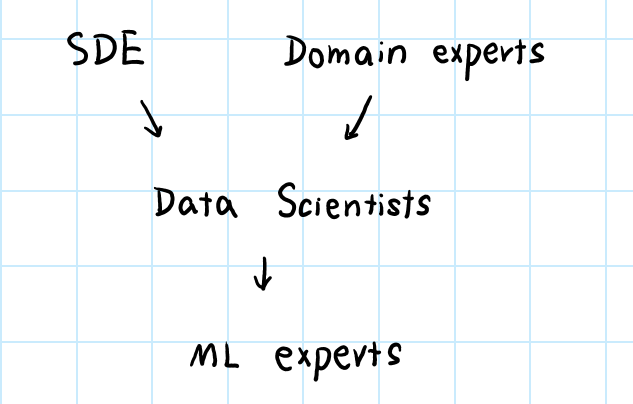 SDE Domain experts
Data Scientists
ML experts